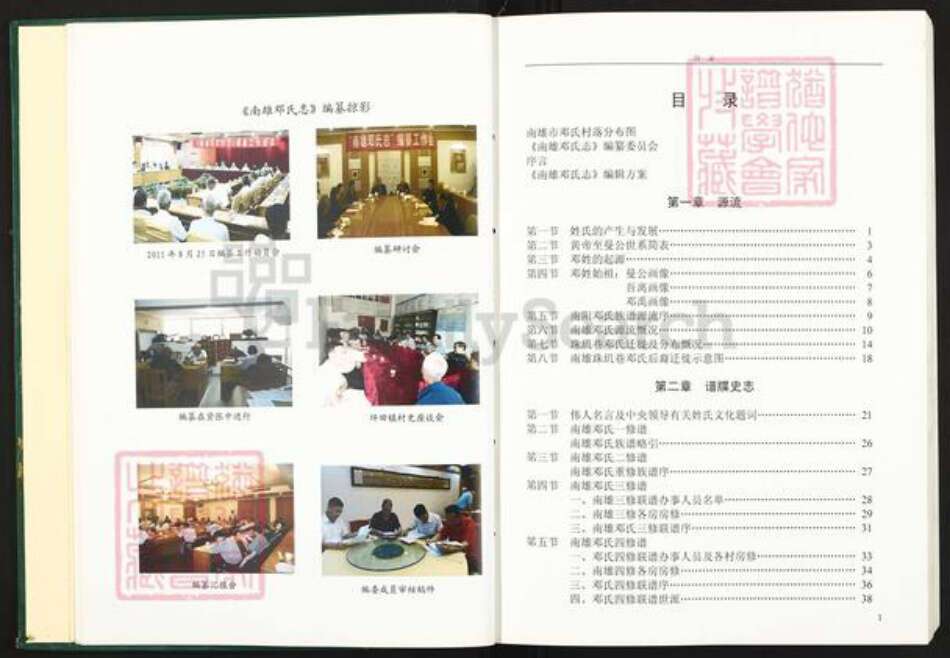 《南雄邓氏志》编纂掠影
南雄邓氏志"编纂工作会
2011年8月25日编纂工作动员会
编纂研讨会
编纂在紧张中进行
坪田镇村史座谈会
编纂汇报会
编委成员审核稿件
目 录
南雄市邓氏村落分布图
《南雄邓氏志》编纂委员会
序言
《南雄邓氏志》编辑方案
第一章 源流
第一节 姓氏的产生与发展 1
第二节 黄帝至曼公世系简表 3
第三节 邓姓的起源 4
第四节 邓姓始祖：曼公画像 6
吾离画像 7
邓禹画像 8
第五节 南阳邓氏族谱源流序 9
第六节 南雄邓氏源流概况 10
第七节 珠玑巷邓氏迁徙及分布概况 14
第八节 南雄珠玑巷邓氏后裔迁徙示意图 18
第二章 谱牒史志
第一节 伟人名言及中央领导有关姓氏文化题词 21
第二节 南雄邓氏一修谱
南雄邓氏族谱略引 26
第三节 南雄邓氏二修谱
南雄邓氏重修族谱序 27
第四节 南雄邓氏三修谱
一、南雄三修联谱办事人员名单 28
二、南雄三修各房房修 29
三、南雄邓氏三修联谱序 31
第五节 南雄邓氏四修谱
一、邓氏四修联谱办事人员及各村房修 33
二、南雄四修各房房修 34
三、邓氏四修联谱序 36
四、邓氏四修联谱世派 38
1